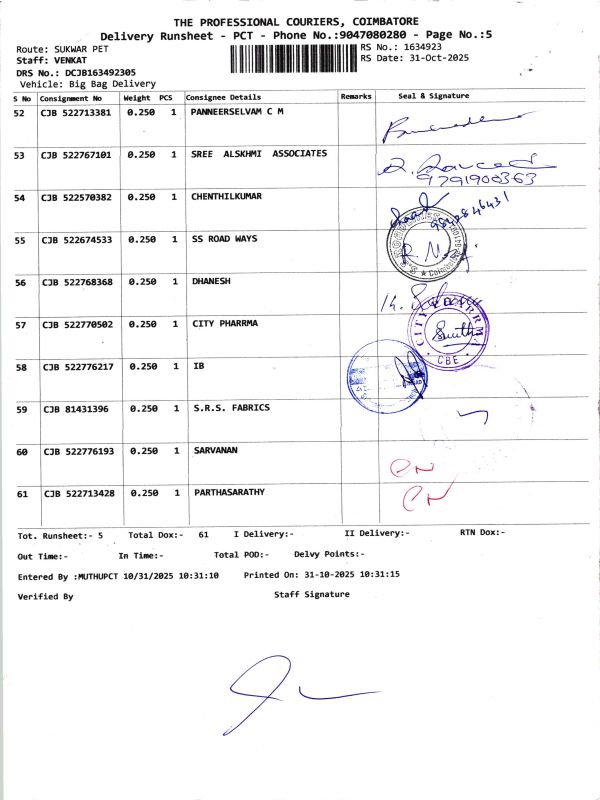 THE PROFESSIONAL COURIERS, COIMBATORE
Delivery Runsheet - PCT - Phone No.:9047080280 - Page No.:5
Route: SUKWAR PET RS No.: 1634923
Staff: VENKAT RS Date: 31-Oct-2025
DRS No.: DCJB163492305
Vehicle: Big Bag Delivery
S No Consignment No Weight PCS Consignee Details Remarks Seal & Signature
52 CJB 522713381 0.250 1 PANNEERSELVAM C M
53 CJB 522767101 0.250 1 SREE ALSKHMI ASSOCIATES
9791900363
54 CJB 522570382 0.250 1 CHENTHILKUMAR
55 CJB 522674533 0.250 1 SS ROAD WAYS
56 CJB 522768368 0.250 1 DHANESH
57 CJB 522770502 0.250 1 CITY PHARRMA
CITY PHARRMA
CBE
58 CJB 522776217 0.250 1 IB
59 CJB 81431396 0.250 1 S.R.S. FABRICS
60 CJB 522776193 0.250 1 SARVANAN
61 CJB 522713428 0.250 1 PARTHASARATHY
Tot. Runsheet:- 5 Total Dox:- 61 I Delivery:- II Delivery:- RTN Dox:-
Out Time:- In Time:- Total POD:- Delvy Points:-
Entered By :MUTHUPCT 10/31/2025 10:31:10 Printed On: 31-10-2025 10:31:15
Verified By Staff Signature